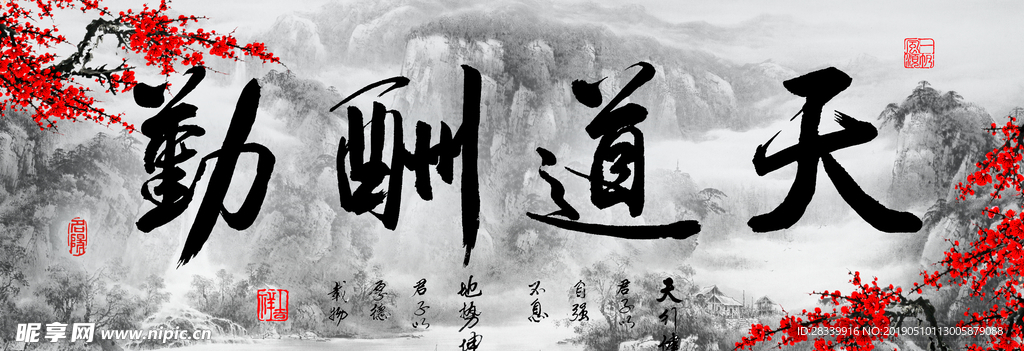 天道酬勤
天行健
君子以
自强
不息
地势坤
君子以
厚德
载物
昵享网 www.nipic.cn
ID:28339916 NO:20190510113005879088